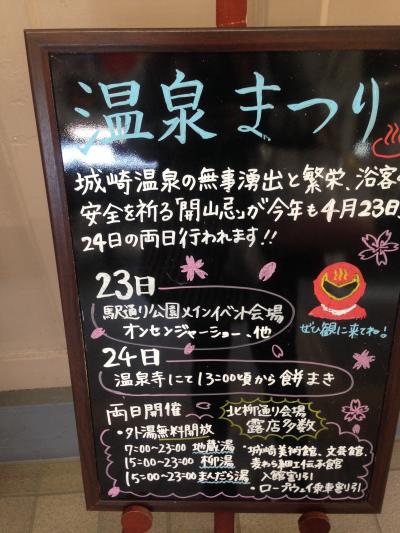 温泉まつり
城崎温泉の無事湧出と繁栄、浴客の
安全を祈る「開山忌」が今年も4月23日
24日の両日行われます!!
23日
駅通り公園メインイベント会場
オンセンジャーショー、他
ぜひ観に来てね!
24日
温泉寺にて13:00頃から餅まき
両日開催
・外湯無料開放
7:00~23:00 地蔵湯
15:00~23:00 柳湯
15:00~23:00 まんだら湯
北柳通り会場
露店多数
・城崎美術館、文芸館、
麦わら細工伝承館
入館割引
・ロープウェイ乗車割引